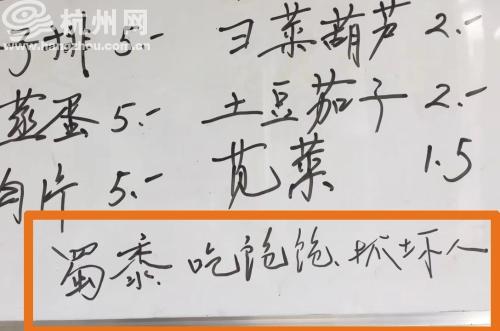 杭州网
www.hangzhou.com.cn
子排 5.- 日菜葫芦 2.-
蒸蛋 5.- 土豆茄子 2.-
肉片 5.- 苋菜 1.5
蜀黍 吃饱饱、抓坏人